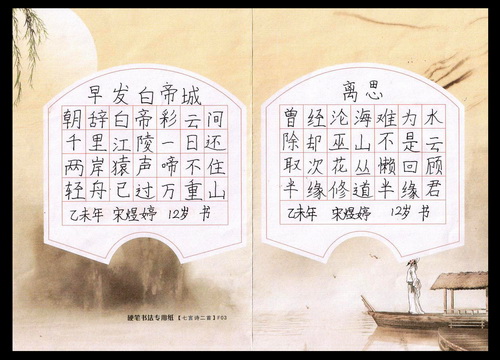 早发白帝城
朝辞白帝彩云间
千里江陵一日还
两岸猿声啼不住
轻舟已过万重山
乙未年 宋煜婷 12岁 书
硬笔书法专用纸 【七言诗二首】F03
离思
曾经沧海难为水
除却巫山不是云
取次花丛懒回顾
半缘修道半缘君
乙未年 宋煜婷 12岁 书